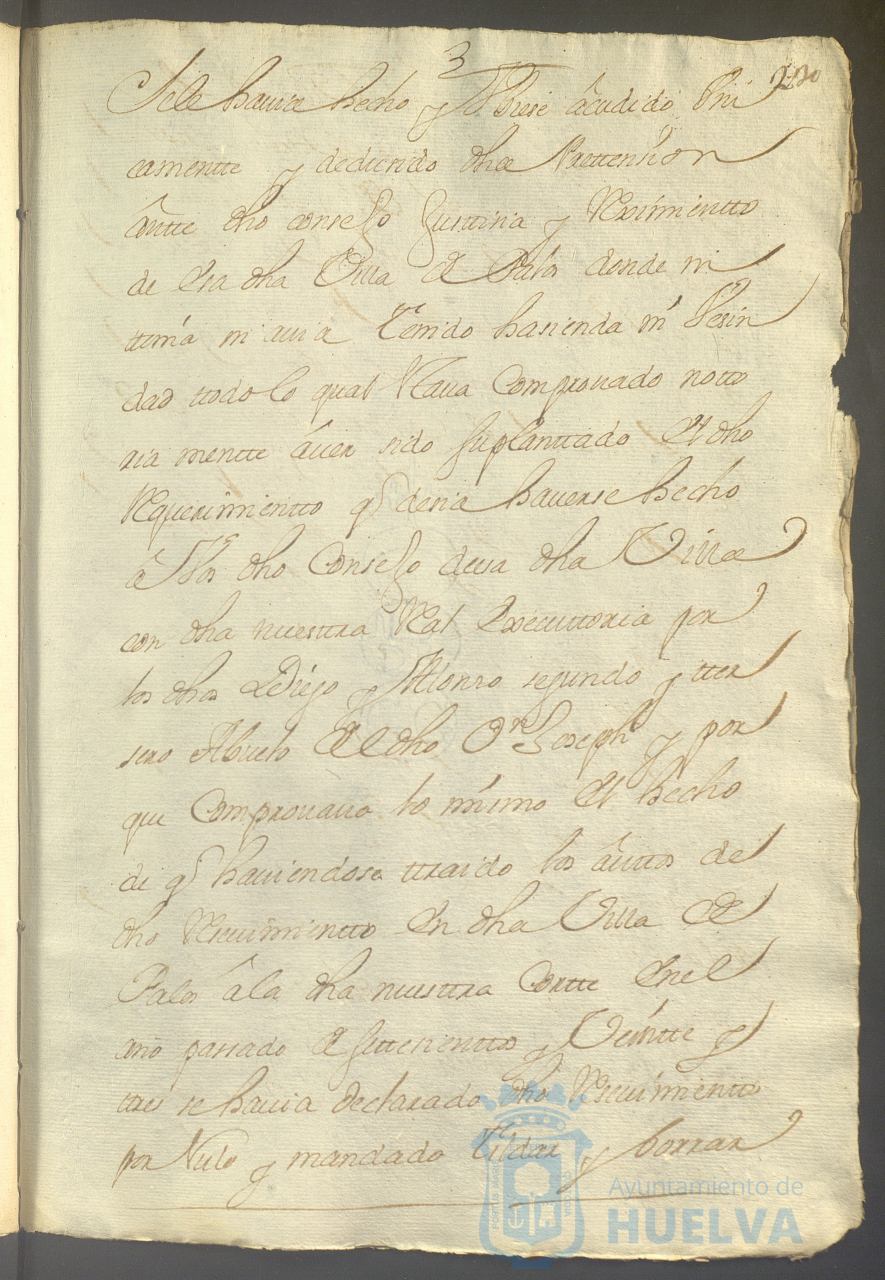 3
220
Se le havia hecho y hese acudido Uni
camentte y deducido dha Prettension
ântte dho consejo Justtisia y Reximientto
de esta dha Villa de Palos donde ni
ttenía ni avia Tenido hasienda ni Vesin
dad ttodo lo qual Hava Comprovado notto
ria mentte âver sido suplanttado El dho
Requerimientto q deria haverse hecho
â los dho Consejo desa dha Villa
con dha nuesttra Real Executtoria por
los dhos Diego y Alonso segundo y tter
sero Abuelo del dho Dn Joseph y por
que Comprovava lo mismo El hecho
de q haviendose ttraido los âuttos del
dho Recivimientto En dha Villa de
Palos â la dha nuesttra Cortte En el
año passado de settesienttos y Veintte y
ttres se havia declarado dho Resivimientto
por Nulo y mandado Tildar y borrar
Ayuntamiento de
HUELVA